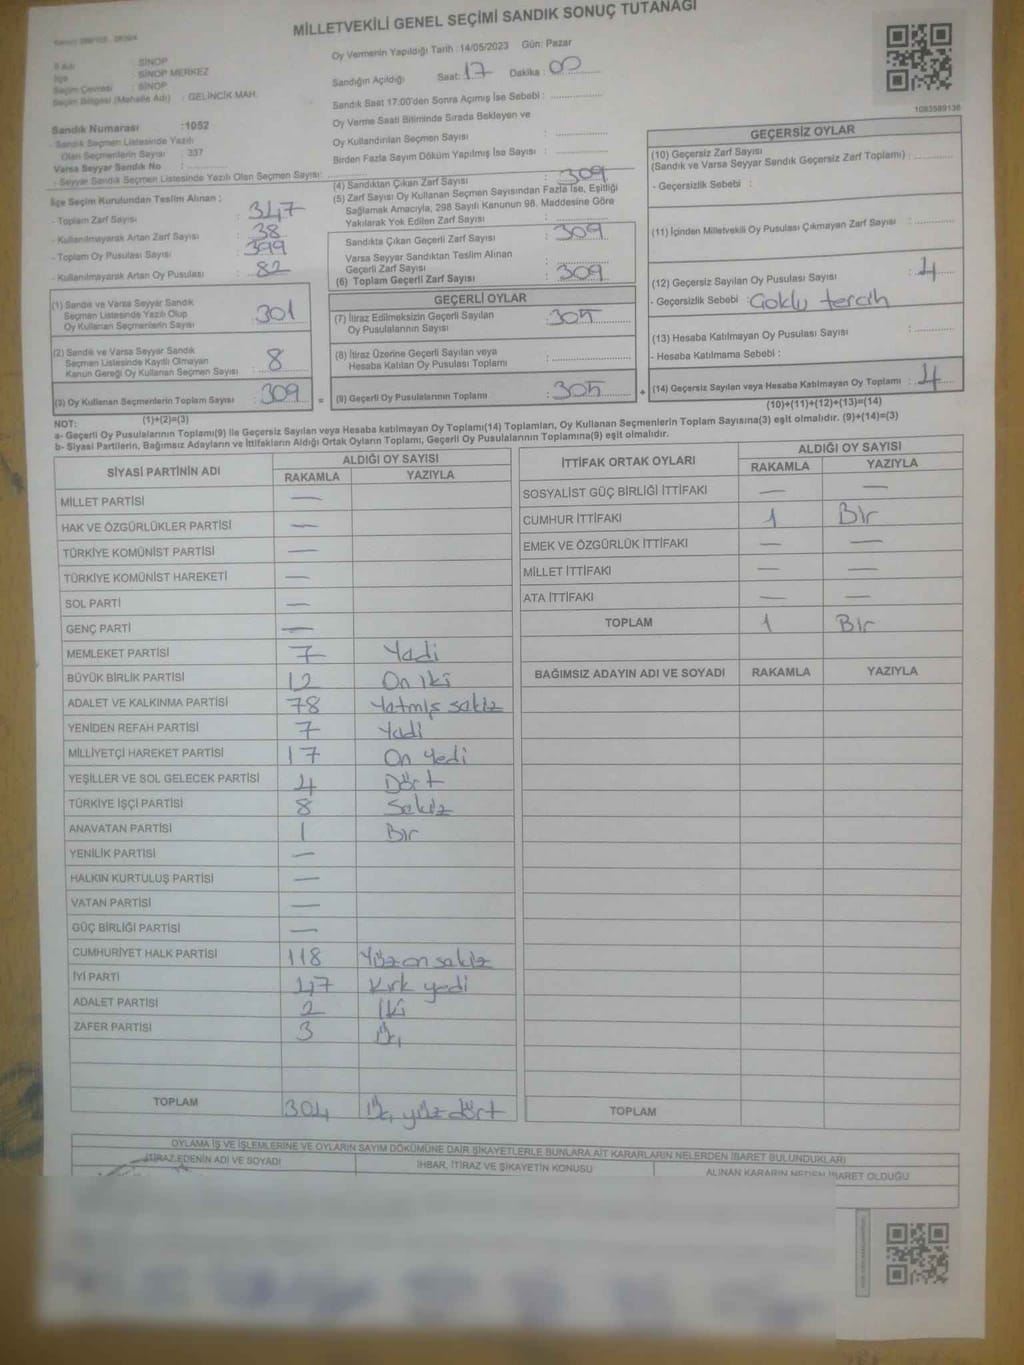 MİLLETVEKİLİ GENEL SEÇİMİ SANDIK SONUÇ TUTANAĞI
İl Adı : SİNOP
İlçe : SİNOP MERKEZ
Seçim Çevresi : SİNOP
Seçim Bölgesi (Mahalle Adı) : GELİNCİK MAH.
Sandık Numarası :1052
- Sandık Seçmen Listesinde Yazılı
Olan Seçmenlerin Sayısı : 337
Varsa Seyyar Sandık No :
- Seyyar Sandık Seçmen Listesinde Yazılı Olan Seçmen Sayısı:
Oy Vermenin Yapıldığı Tarih :14/05/2023 Gün: Pazar
Sandığın Açıldığı Saat: 17 Dakika : 00
Sandık Saat 17:00'den Sonra Açımış İse Sebebi :
Oy Verme Saati Bitiminde Sırada Bekleyen ve
Oy Kullandırılan Seçmen Sayısı :
Birden Fazla Sayım Döküm Yapılmış İse Sayısı :
1083589136
İlçe Seçim Kurulundan Teslim Alınan ;
- Toplam Zarf Sayısı : 347
- Kullanılmayarak Artan Zarf Sayısı : 38
- Toplam Oy Pusulası Sayısı : 399
- Kullanılmayarak Artan Oy Pusulası : 82
(1) Sandık ve Varsa Seyyar Sandık
Seçmen Listesinde Yazılı Olup
Oy Kullanan Seçmenlerin Sayısı : 301
(2) Sandık ve Varsa Seyyar Sandık
Seçmen Listesinde Kayıtlı Olmayan
Kanun Gereği Oy Kullanan Seçmen Sayısı : 8
(3) Oy Kullanan Seçmenlerin Toplam Sayısı : 309
(1)+(2)=(3)
(4) Sandıktan Çıkan Zarf Sayısı : 309
(5) Zarf Sayısı Oy Kullanan Seçmen Sayısından Fazla İse, Eşitliği
Sağlamak Amacıyla, 298 Sayılı Kanunun 98. Maddesine Göre
Yakılarak Yok Edilen Zarf Sayısı :
Sandıkta Çıkan Geçerli Zarf Sayısı : 309
Varsa Seyyar Sandıktan Teslim Alınan
Geçerli Zarf Sayısı :
(6) Toplam Geçerli Zarf Sayısı : 309
GEÇERLİ OYLAR
(7) İtiraz Edilmeksizin Geçerli Sayılan
Oy Pusulalarının Sayısı : 305
(8) İtiraz Üzerine Geçerli Sayılan veya
Hesaba Katılan Oy Pusulası Toplamı :
= (9) Geçerli Oy Pusulalarının Toplamı : 305 +
GEÇERSİZ OYLAR
(10) Geçersiz Zarf Sayısı
(Sandık ve Varsa Seyyar Sandık Geçersiz Zarf Toplamı) :
- Geçersizlik Sebebi :
(11) İçinden Milletvekili Oy Pusulası Çıkmayan Zarf Sayısı :
(12) Geçersiz Sayılan Oy Pusulası Sayısı : 4
- Geçersizlik Sebebi : Çoklu tercih
(13) Hesaba Katılmayan Oy Pusulası Sayısı :
- Hesaba Katılmama Sebebi :
(14) Geçersiz Sayılan veya Hesaba Katılmayan Oy Toplamı : 4
(10)+(11)+(12)+(13)=(14)
NOT:
a- Geçerli Oy Pusulalarının Toplamı(9) ile Geçersiz Sayılan veya Hesaba katılmayan Oy Toplamı(14) Toplamları, Oy Kullanan Seçmenlerin Toplam Sayısına(3) eşit olmalıdır. (9)+(14)=(3)
b- Siyasi Partilerin, Bağımsız Adayların ve İttifakların Aldığı Ortak Oyların Toplamı, Geçerli Oy Pusulalarının Toplamına(9) eşit olmalıdır.
SİYASİ PARTİNİN ADI ALDIĞI OY SAYISI
RAKAMLA YAZIYLA
MİLLET PARTİSİ —
HAK VE ÖZGÜRLÜKLER PARTİSİ —
TÜRKİYE KOMÜNİST PARTİSİ —
TÜRKİYE KOMÜNİST HAREKETİ —
SOL PARTİ —
GENÇ PARTİ —
MEMLEKET PARTİSİ 7 Yedi
BÜYÜK BİRLİK PARTİSİ 12 On iki
ADALET VE KALKINMA PARTİSİ 78 Yetmiş sekiz
YENİDEN REFAH PARTİSİ 7 Yedi
MİLLİYETÇİ HAREKET PARTİSİ 17 On yedi
YEŞİLLER VE SOL GELECEK PARTİSİ 4 Dört
TÜRKİYE İŞÇİ PARTİSİ 8 Sekiz
ANAVATAN PARTİSİ 1 Bir
YENİLİK PARTİSİ —
HALKIN KURTULUŞ PARTİSİ —
VATAN PARTİSİ —
GÜÇ BİRLİĞİ PARTİSİ —
CUMHURİYET HALK PARTİSİ 118 Yüz on sekiz
İYİ PARTİ 47 Kırk yedi
ADALET PARTİSİ 2 İki
ZAFER PARTİSİ 3 Üç
TOPLAM 304 Üç yüz dört
İTTİFAK ORTAK OYLARI ALDIĞI OY SAYISI
RAKAMLA YAZIYLA
SOSYALİST GÜÇ BİRLİĞİ İTTİFAKI — —
CUMHUR İTTİFAKI 1 Bir
EMEK VE ÖZGÜRLÜK İTTİFAKI — —
MİLLET İTTİFAKI — —
ATA İTTİFAKI — —
TOPLAM 1 Bir
BAĞIMSIZ ADAYIN ADI VE SOYADI RAKAMLA YAZIYLA
TOPLAM
OYLAMA İŞ VE İŞLEMLERİNE VE OYLARIN SAYIM DÖKÜMÜNE DAİR ŞİKAYETLERLE BUNLARA AİT KARARLARIN NELERDEN İBARET BULUNDUKLARI
İTİRAZ EDENİN ADI VE SOYADI İHBAR, İTİRAZ VE ŞİKAYETİN KONUSU ALINAN KARARIN NEDEN İBARET OLDUĞU